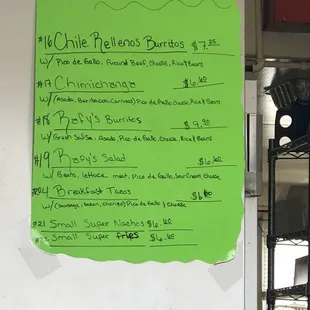 #16 Chile Rellenos Burritos $7.25
w/ Pico de Gallo, Ground Beef, Cheese, Rice & Beans
#17 Chimichanga $6.60
w/ (Asada, Barbacoa, Carnitas) Pico de Gallo Cheese, Rice & Beans
#18 Rafy's Burritos $9.90
w/ Green Salsa, Asada, Pico de Gallo, Cheese, Rice & Beans
#19 Rafy's Salad $6.60
w/ Beans, lettuce, meat, Pico de Gallo, Sour Cream, Cheese
Breakfast Tacos
w/ (sausage, bacon, chorizo) Pico de Gallo & Cheese
#21 Small Super Nachos $6.60
Small Super fries $6.60